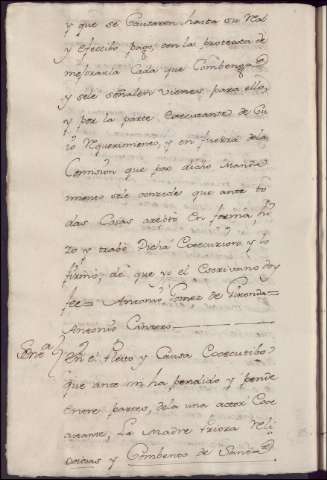 y que se Causaren hasta su Real
y efectibo pago, con la protexta de
mejorarla Cada que Combenga
y sele señalen vienes para ello,
y por la parte executante de Cu
io Requerimento, y en fuerza dela
Comision que por dicho Manda
miento sele conzede que ante to
das Cosas acepto En forma hi
zo y trabo dicha execuzion y lo
firmo, de que yo el Escrivano doy
fee = Antonio Gomez de
Antonio Cantero
Senª
En el Pleito y Causa executibo
que ante mi ha pendido y pende
entre partes, dela una actor exe
cutante, La Madre Priora Reli
xiosas y Combento de Santa